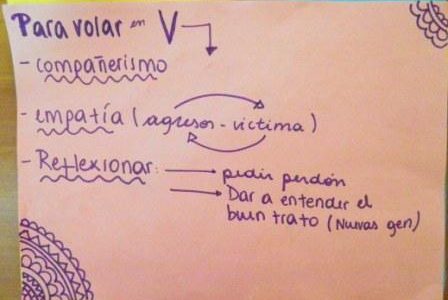 Para volar en V
- Compañerismo
- empatía (agresor - victima)
- Reflexionar:
pedir perdón
Dar a entender el
buen trato (Nuevas gen)